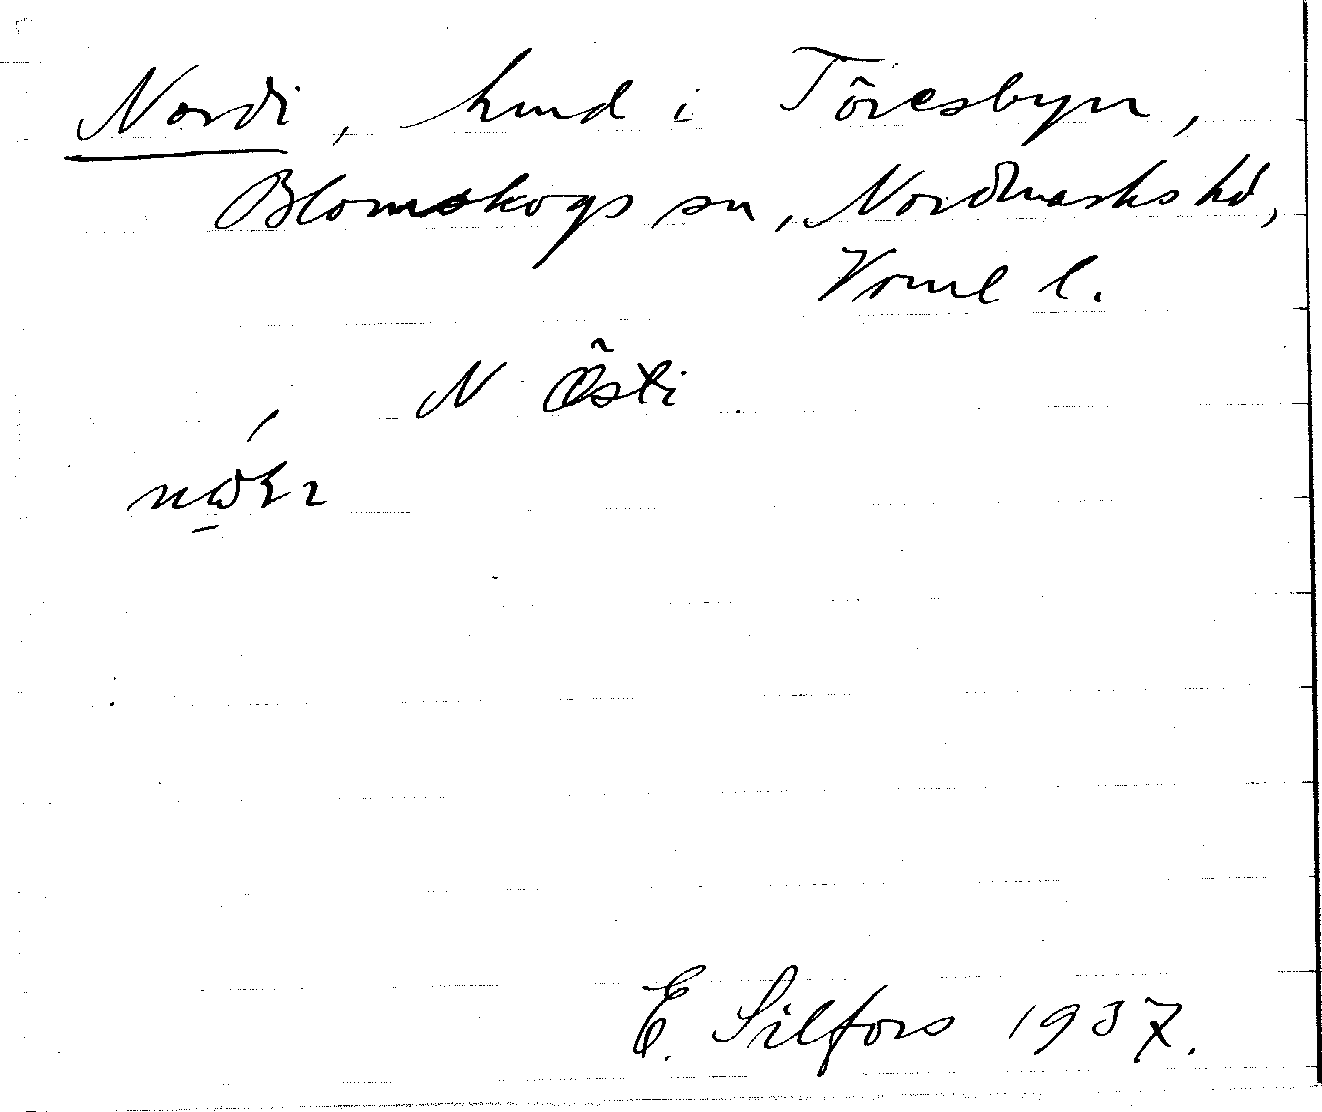 Nordi, hmd i Töresbyn,
Blomskogs sn, Nordmarks hd,
Vrml l.
N Östi
E. Silfors 1937.